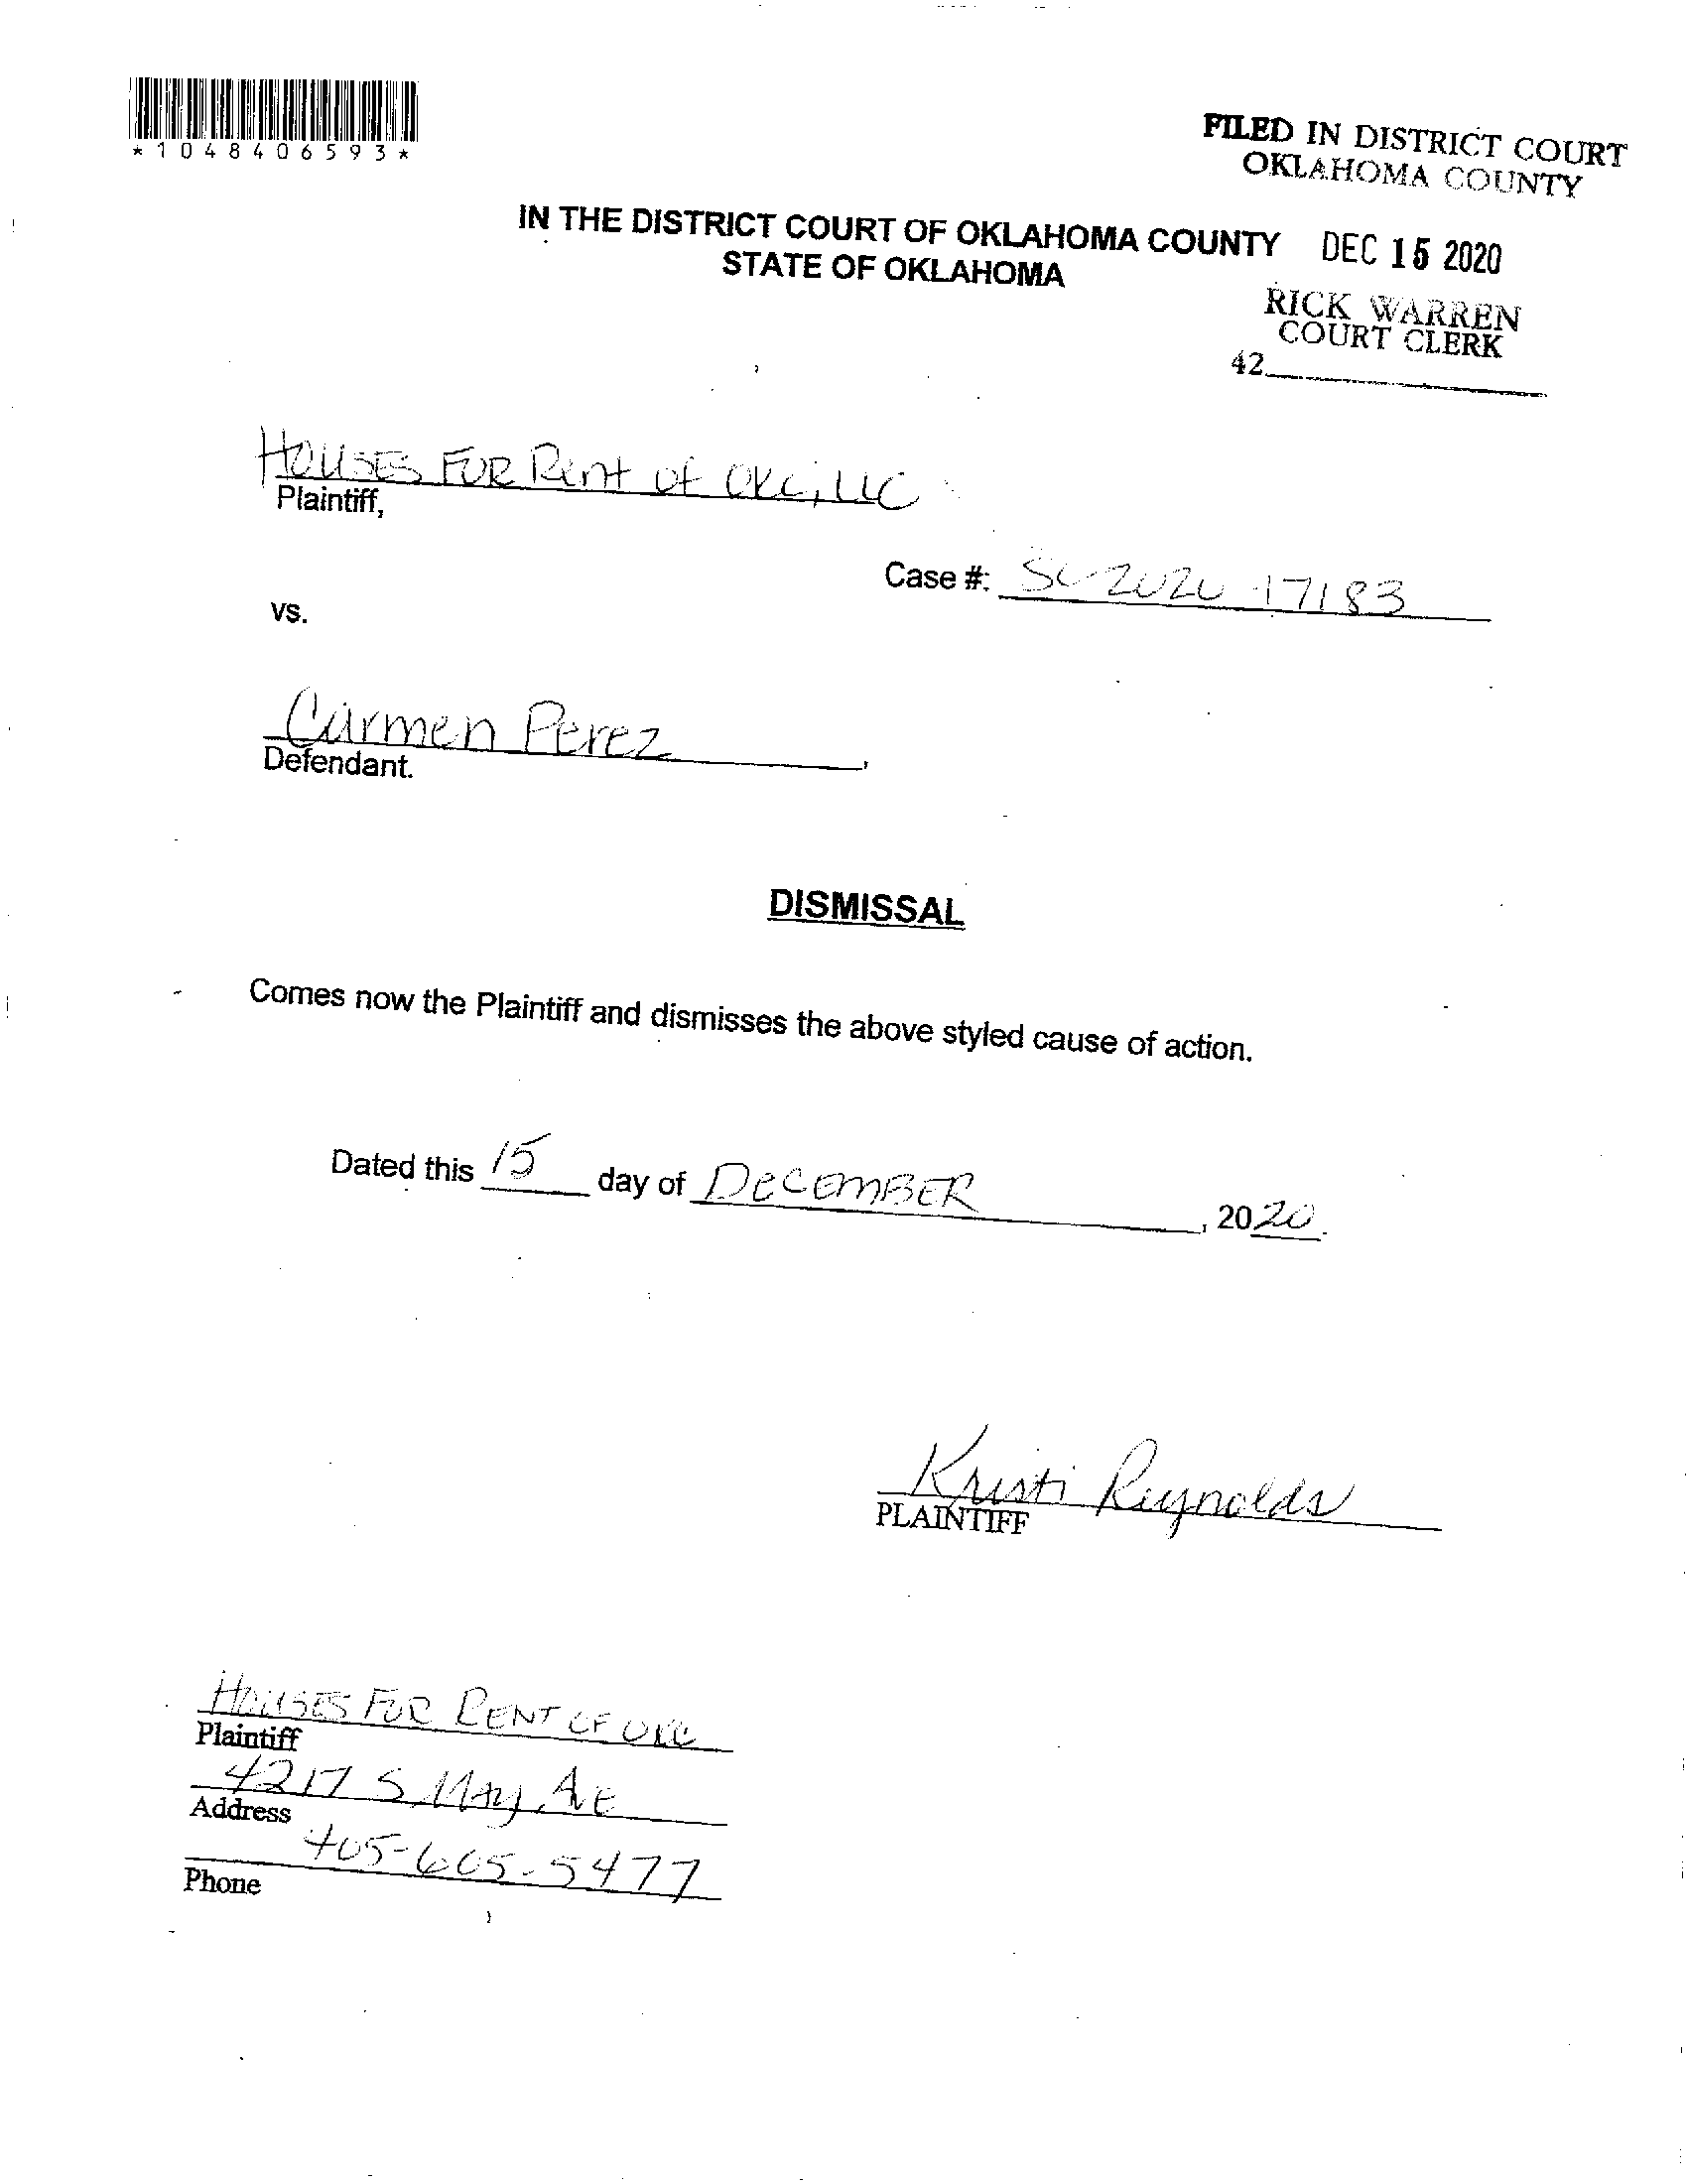 *1048406593*
FILED IN DISTRICT COURT
OKLAHOMA COUNTY
IN THE DISTRICT COURT OF OKLAHOMA COUNTY
STATE OF OKLAHOMA
DEC 15 2020
RICK WARREN
COURT CLERK
42
HOUSES FOR Rent of OKC, LLC
Plaintiff,
Case #: SC-2020-17183
vs.
Carmen Perez
Defendant.
DISMISSAL
Comes now the Plaintiff and dismisses the above styled cause of action.
Dated this 15 day of DECEMBER, 2020.
Kristi Reynolds
PLAINTIFF
HOUSES FOR RENT OF OKC
Plaintiff
4217 S May Ave
Address
405-605-5477
Phone